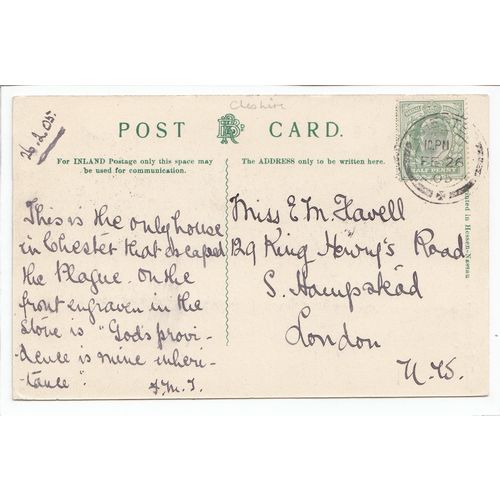 Cheshire
POST CARD.
26.2.05.
For INLAND Postage only this space may
be used for communication.
The ADDRESS only to be written here.
10 PM
FE 26
05
HALF PENNY
Printed in Hessen-Nassau
This is the only house
in Chester that escaped
the Plague. On the
front engraven in the
stone is "God's provi-
-dence is mine inheri-
-tance".
Miss E. M. Favell
129 King Henry's Road
S. Hampstead
London
N.W.